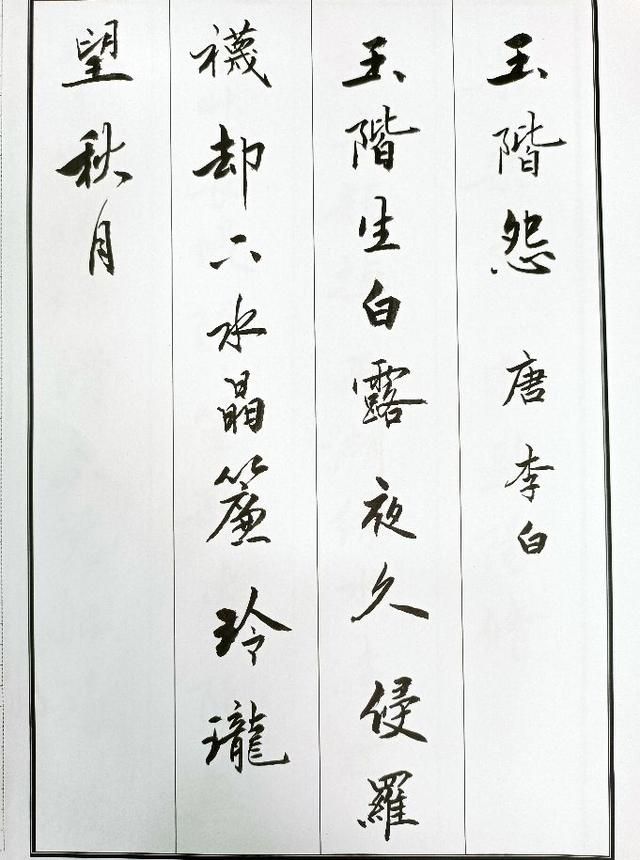 玉階怨 唐 李白
玉階生白露夜久侵羅
襪却下水晶簾玲瓏
望秋月